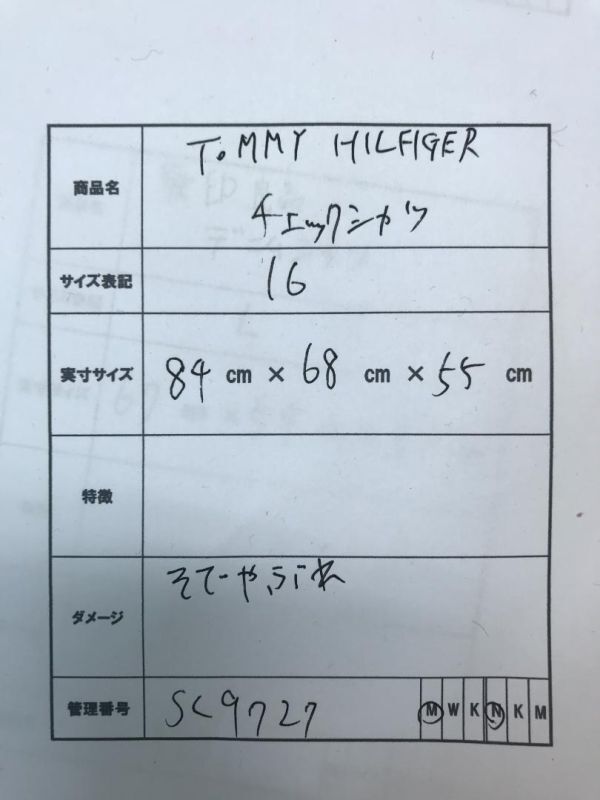 商品名 TOMMY HILFIGER
チェックシャツ
サイズ表記 16
実寸サイズ 84 cm × 68 cm × 55 cm
特徴
ダメージ そでやぶれ
管理番号 SC9727 M W K N K M